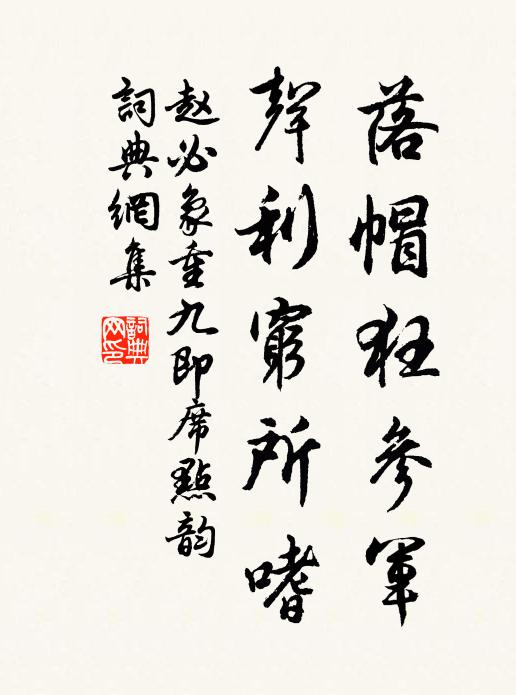 落帽狂參軍
聲利窮所嗜
赵必象重九即席點韵
詞典網集
詞典网印